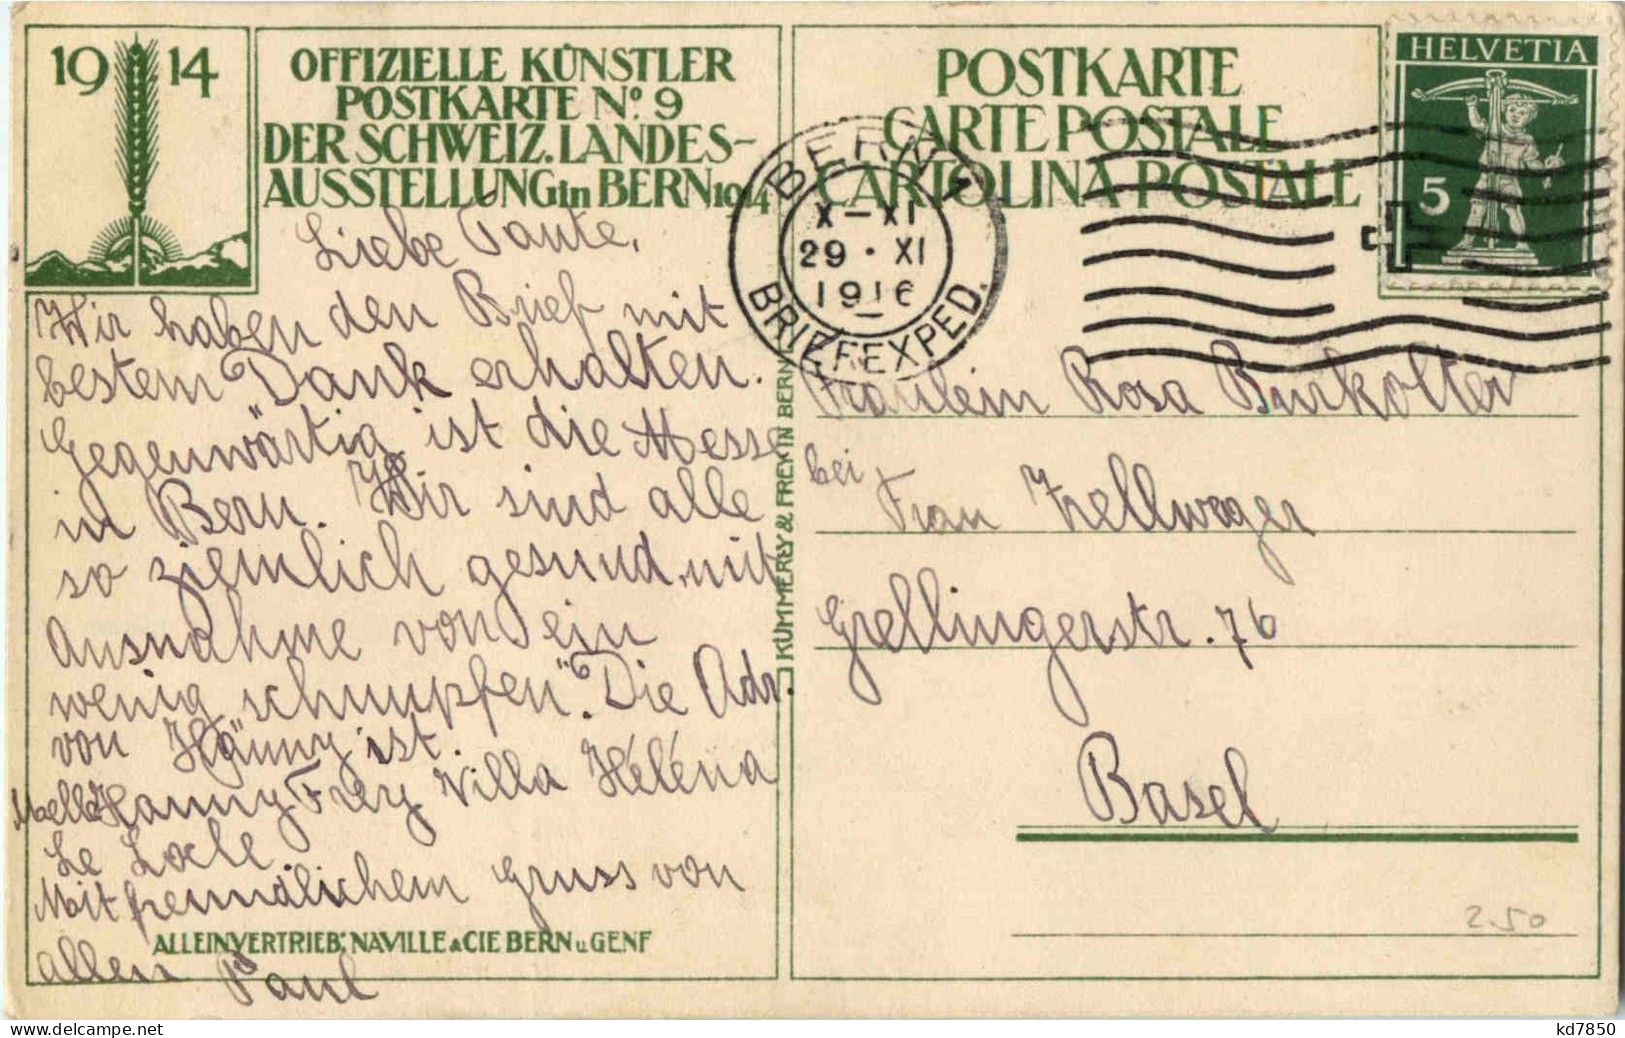 19 14
OFFIZIELLE KÜNSTLER
POSTKARTE No. 9
DER SCHWEIZ. LANDES-
AUSSTELLUNG in BERN 1914
Liebe Tante,
Wir haben den Brief mit
bestem Dank erhalten.
Gegenwärtig ist die Messe
in Bern. Wir sind alle
so ziemlich gesund, mit
Ausnahme von "ein
wenig schnupfen". Die Adr.
von Hänny ist.
Melle Hanny Frey Villa Héléna
Le Locle
Mit freundlichem Gruss von
allen Paul
ALLEINVERTRIEB: NAVILLE & CIE BERN u. GENF
KÜMMERLY & FREY IN BERN
POSTKARTE
CARTE POSTALE
CARTOLINA POSTALE
BERN 1
X—XI
29 · XI
1916
BRIEFEXPED.
HELVETIA
5
Fräulein Rosa Burkolter
bei Frau Zellweger
Grellingerstr. 76
Basel
2.50
kd7850